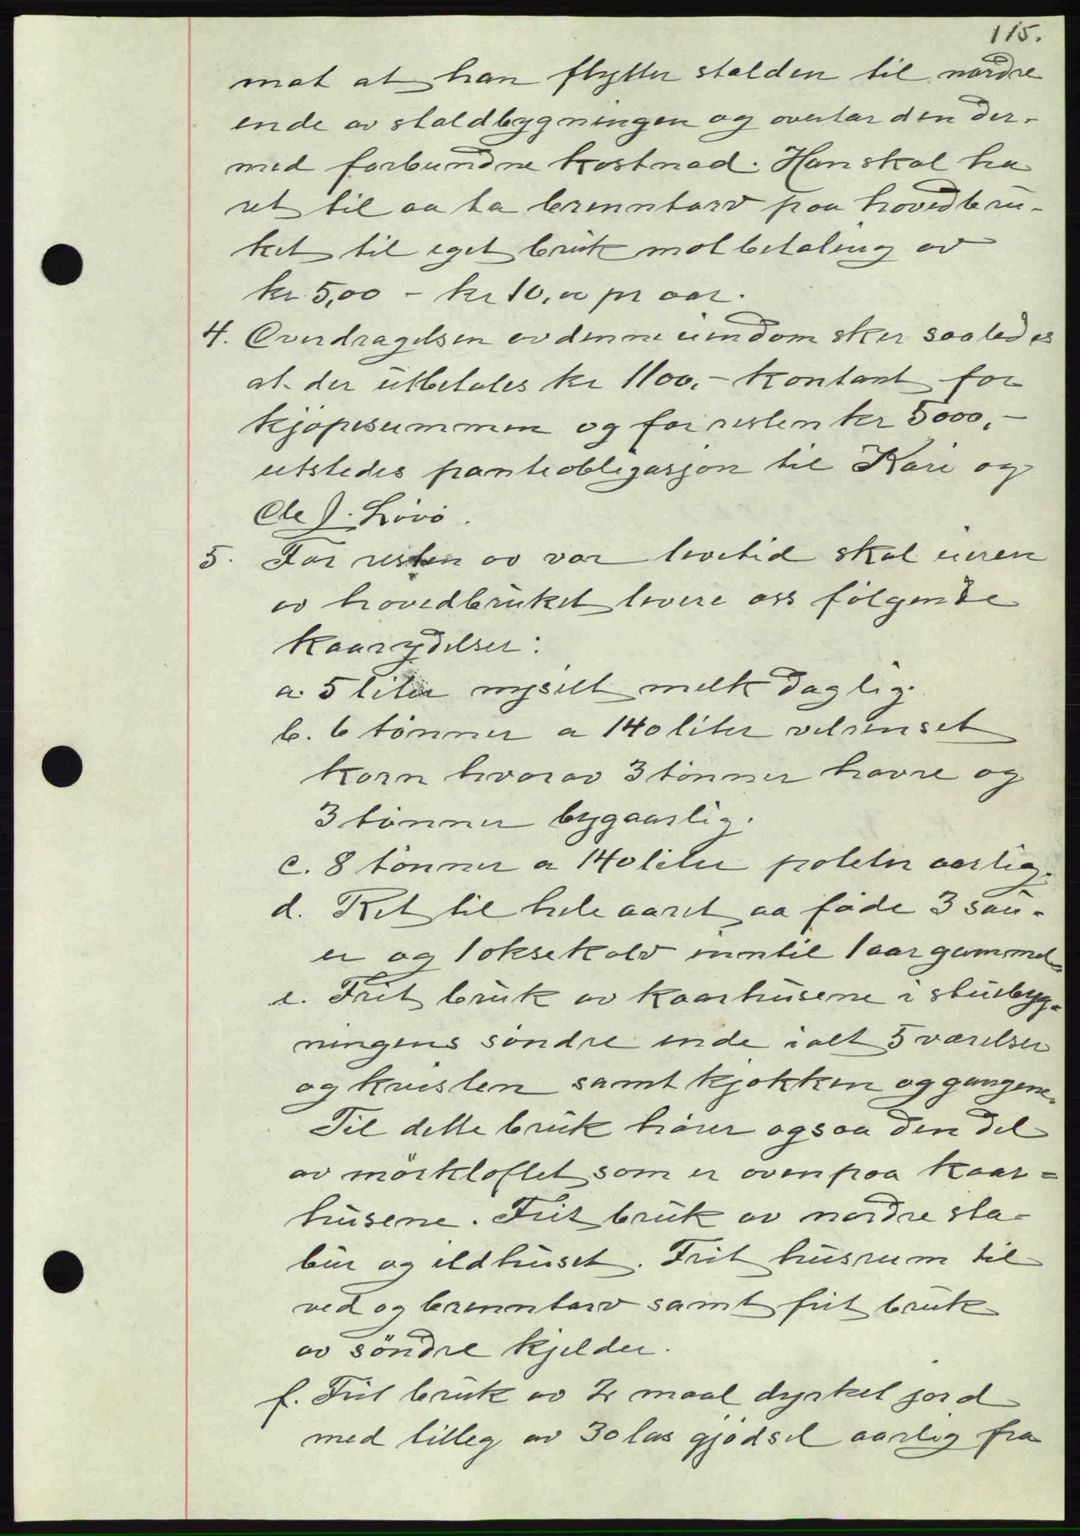 115.
mot at han flytter stalden til nordre
ende av staldbygningen og overtar den der-
med forbundne kostnad. Han skal ha
ret til aa ta brenntorv paa hovedbru-
ket til eget bruk mot betaling av
kr 5,00 - kr 10,00 pr aar.
4. Overdragelsen av denne eiendom sker saaledes
at der utbetales kr 1100,- kontant for
kjøpesummen og for resten kr 5000,-
utstedes panteobligasjon til Kari og
Ole J. Løvø.
5. For resten av vor levetid skal eieren
av hovedbruket levere oss følgende
kaarydelser:
a. 5 liter nysilt melk daglig.
b. 6 tønner a 140 liter velrenset
korn hvorav 3 tønner havre og
3 tønner byg aarlig.
c. 8 tønner a 140 liter poteter aarlig.
d. Ret til hele aaret aa føde 3 sau-
er og 1 oksekalv inntil 1 aar gammel.
e. Frit bruk av kaarhusene i stubyg-
ningens søndre ende ialt 5 værelser
og kvisten samt kjøkken og gangene.
Til dette bruk hører ogsaa den del
av mørkloftet som er oven paa kaar=
husene. Frit bruk av nordre sta-
bur og ildhuset. Frit husrum til
ved og brenntorv samt frit bruk
av søndre kjelder.
f. Frit bruk av 2 maal dyrket jord
med tilleg av 30 las gjødsel aarlig fra